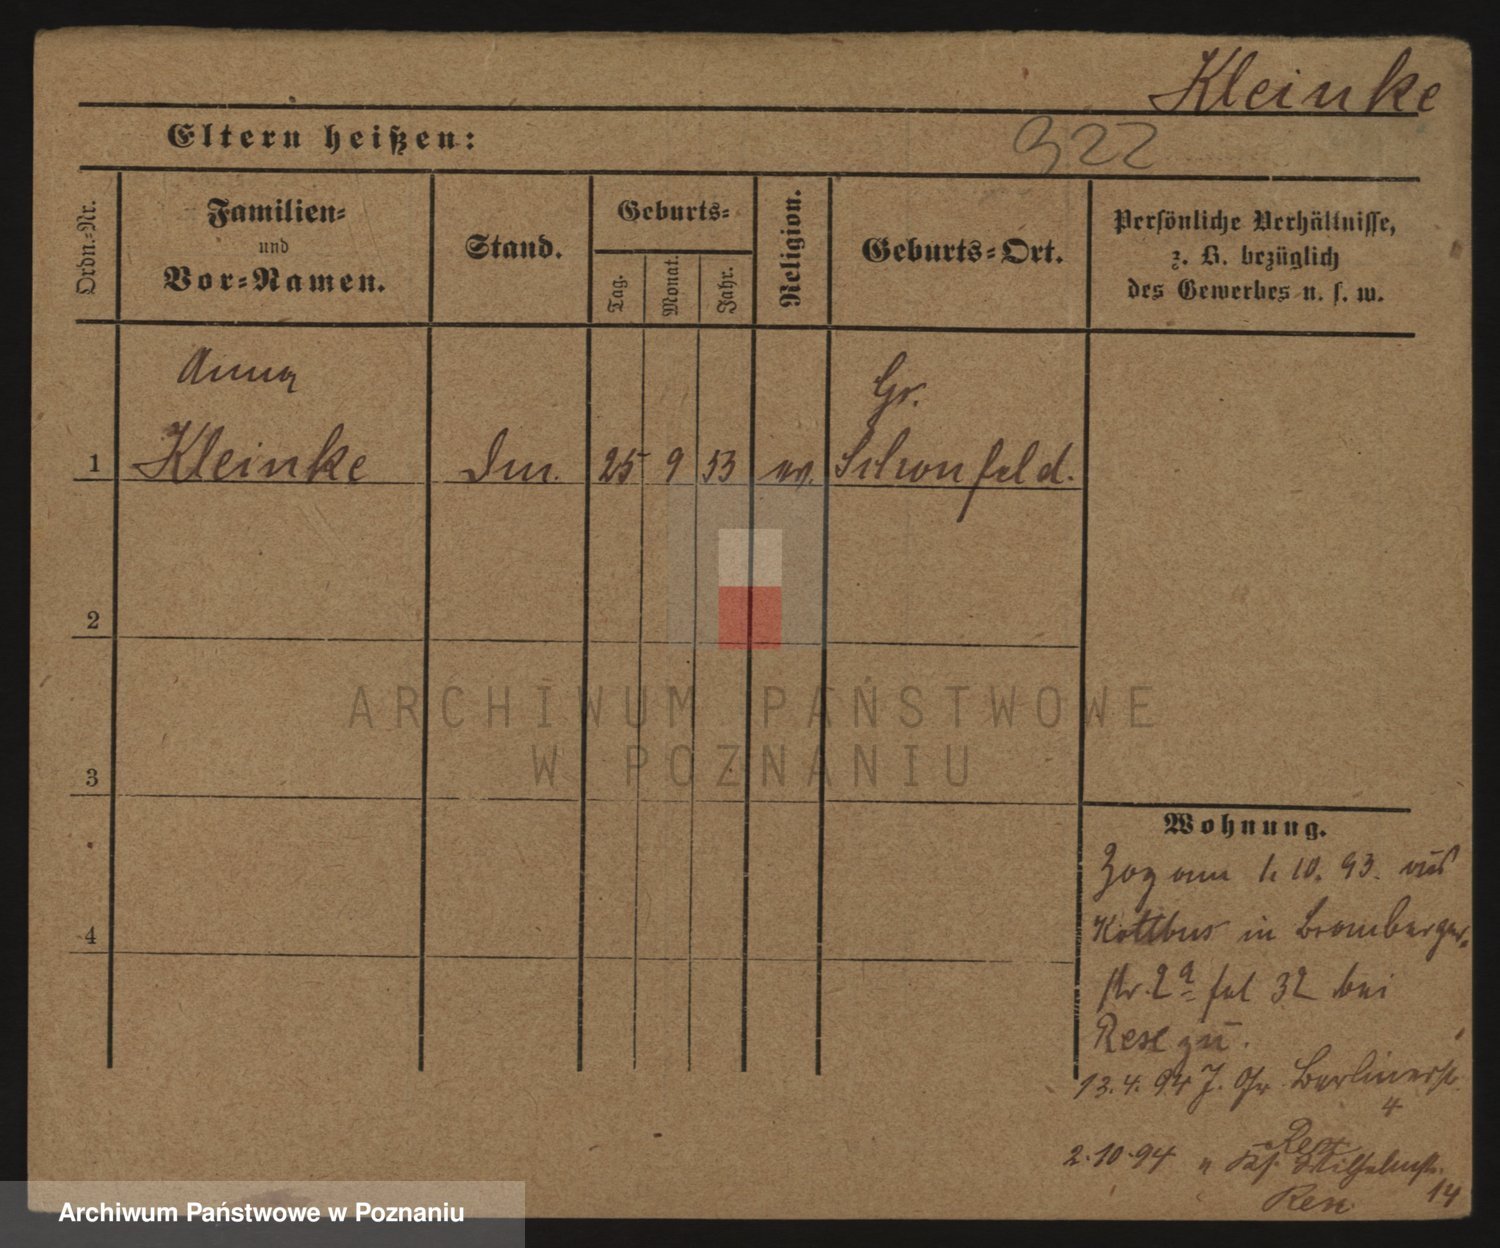 Kleinke
Eltern heißen:
322
Ordn.-Nr.
Familien-
und
Vor-Namen.
Stand.
Geburts-
Tag.
Monat.
Jahr.
Religion.
Geburts-Ort.
Persönliche Verhältnisse,
z. B. bezüglich
des Gewerbes u. s. w.
Anna
Gr.
1 Kleinke 25 9 53 ev. Schönfeld.
2
3
4
ARCHIWUM PAŃSTWOWE
W POZNANIU
Wohnung.
Zog am 1. 10. 93. aus
Kottbus in Bromberger
str. 2a 32 bei
zu.
13.4.94 Berlinerstr.
4
2.10.94 " Wilhelmstr.
14
Archiwum Państwowe w Poznaniu